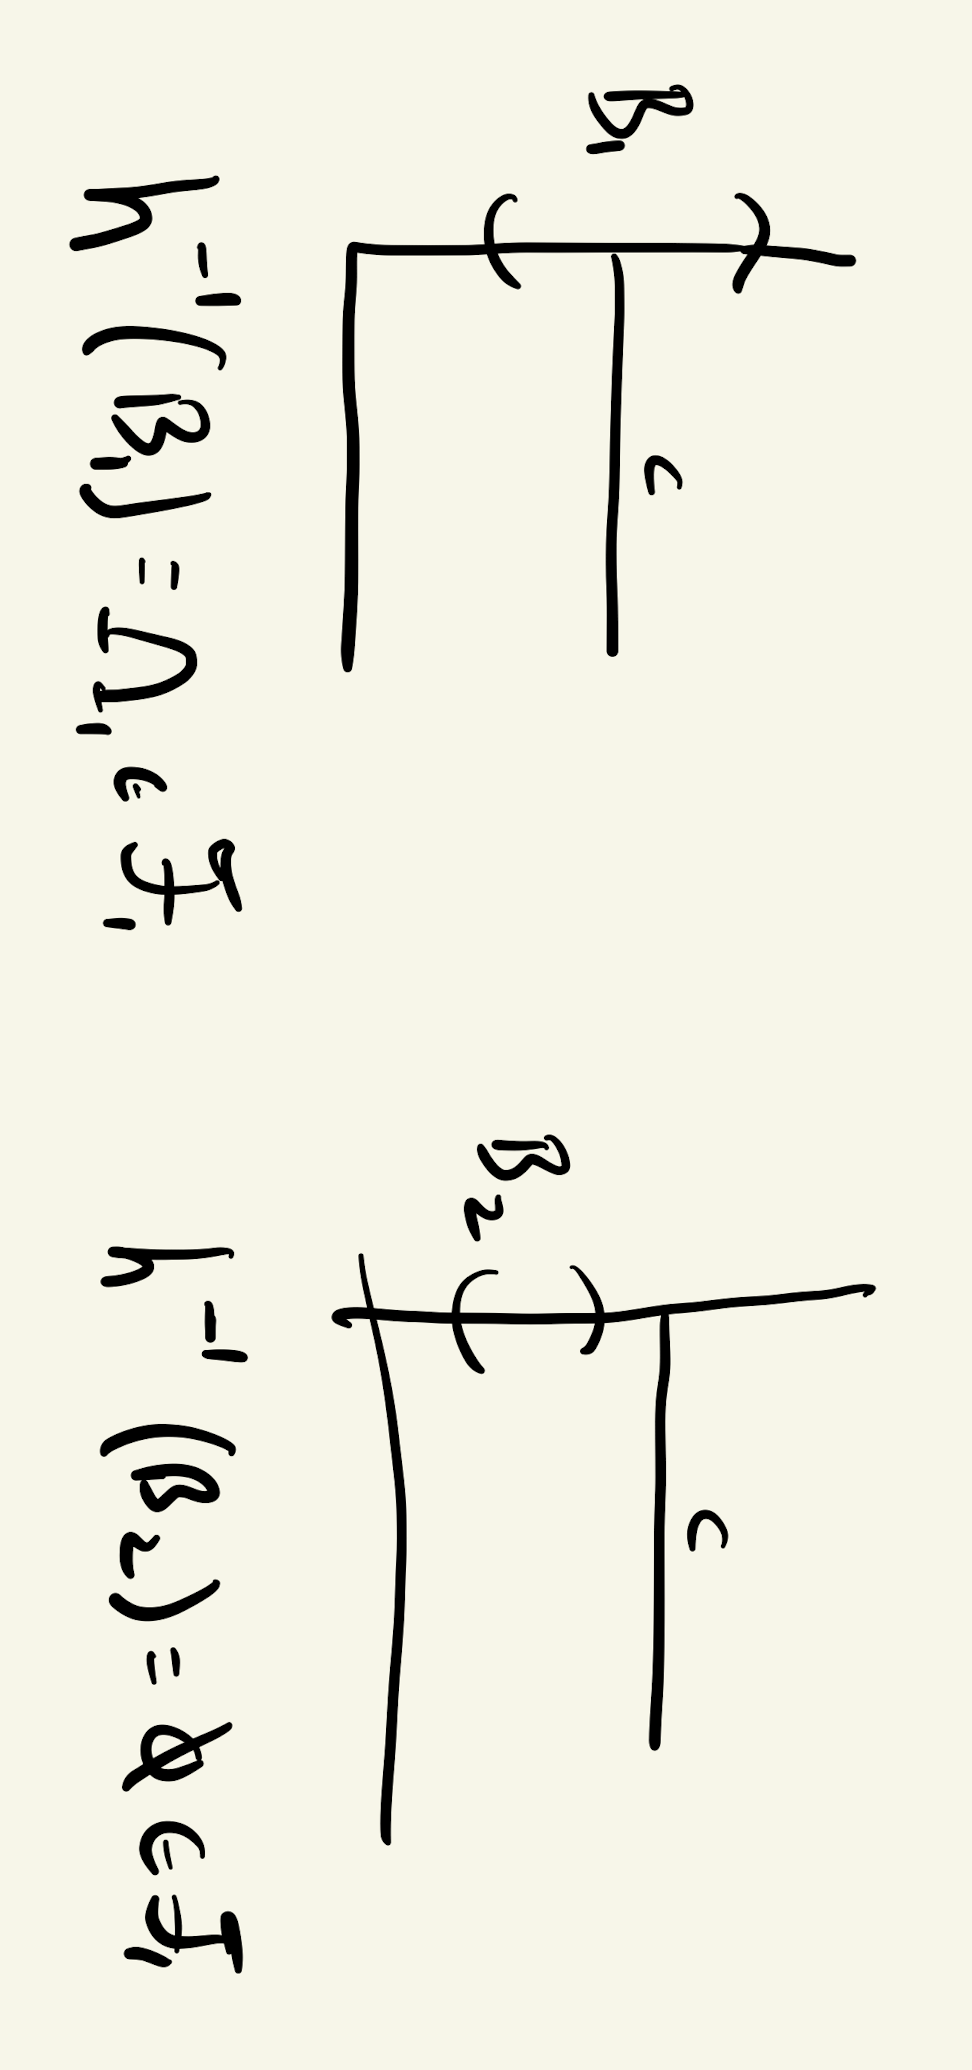 B₁
c
h⁻¹(B₁) = Ω₁ ∈ ℱ₁
B₂
c
h⁻¹(B₂) = ∅ ∈ ℱ₁